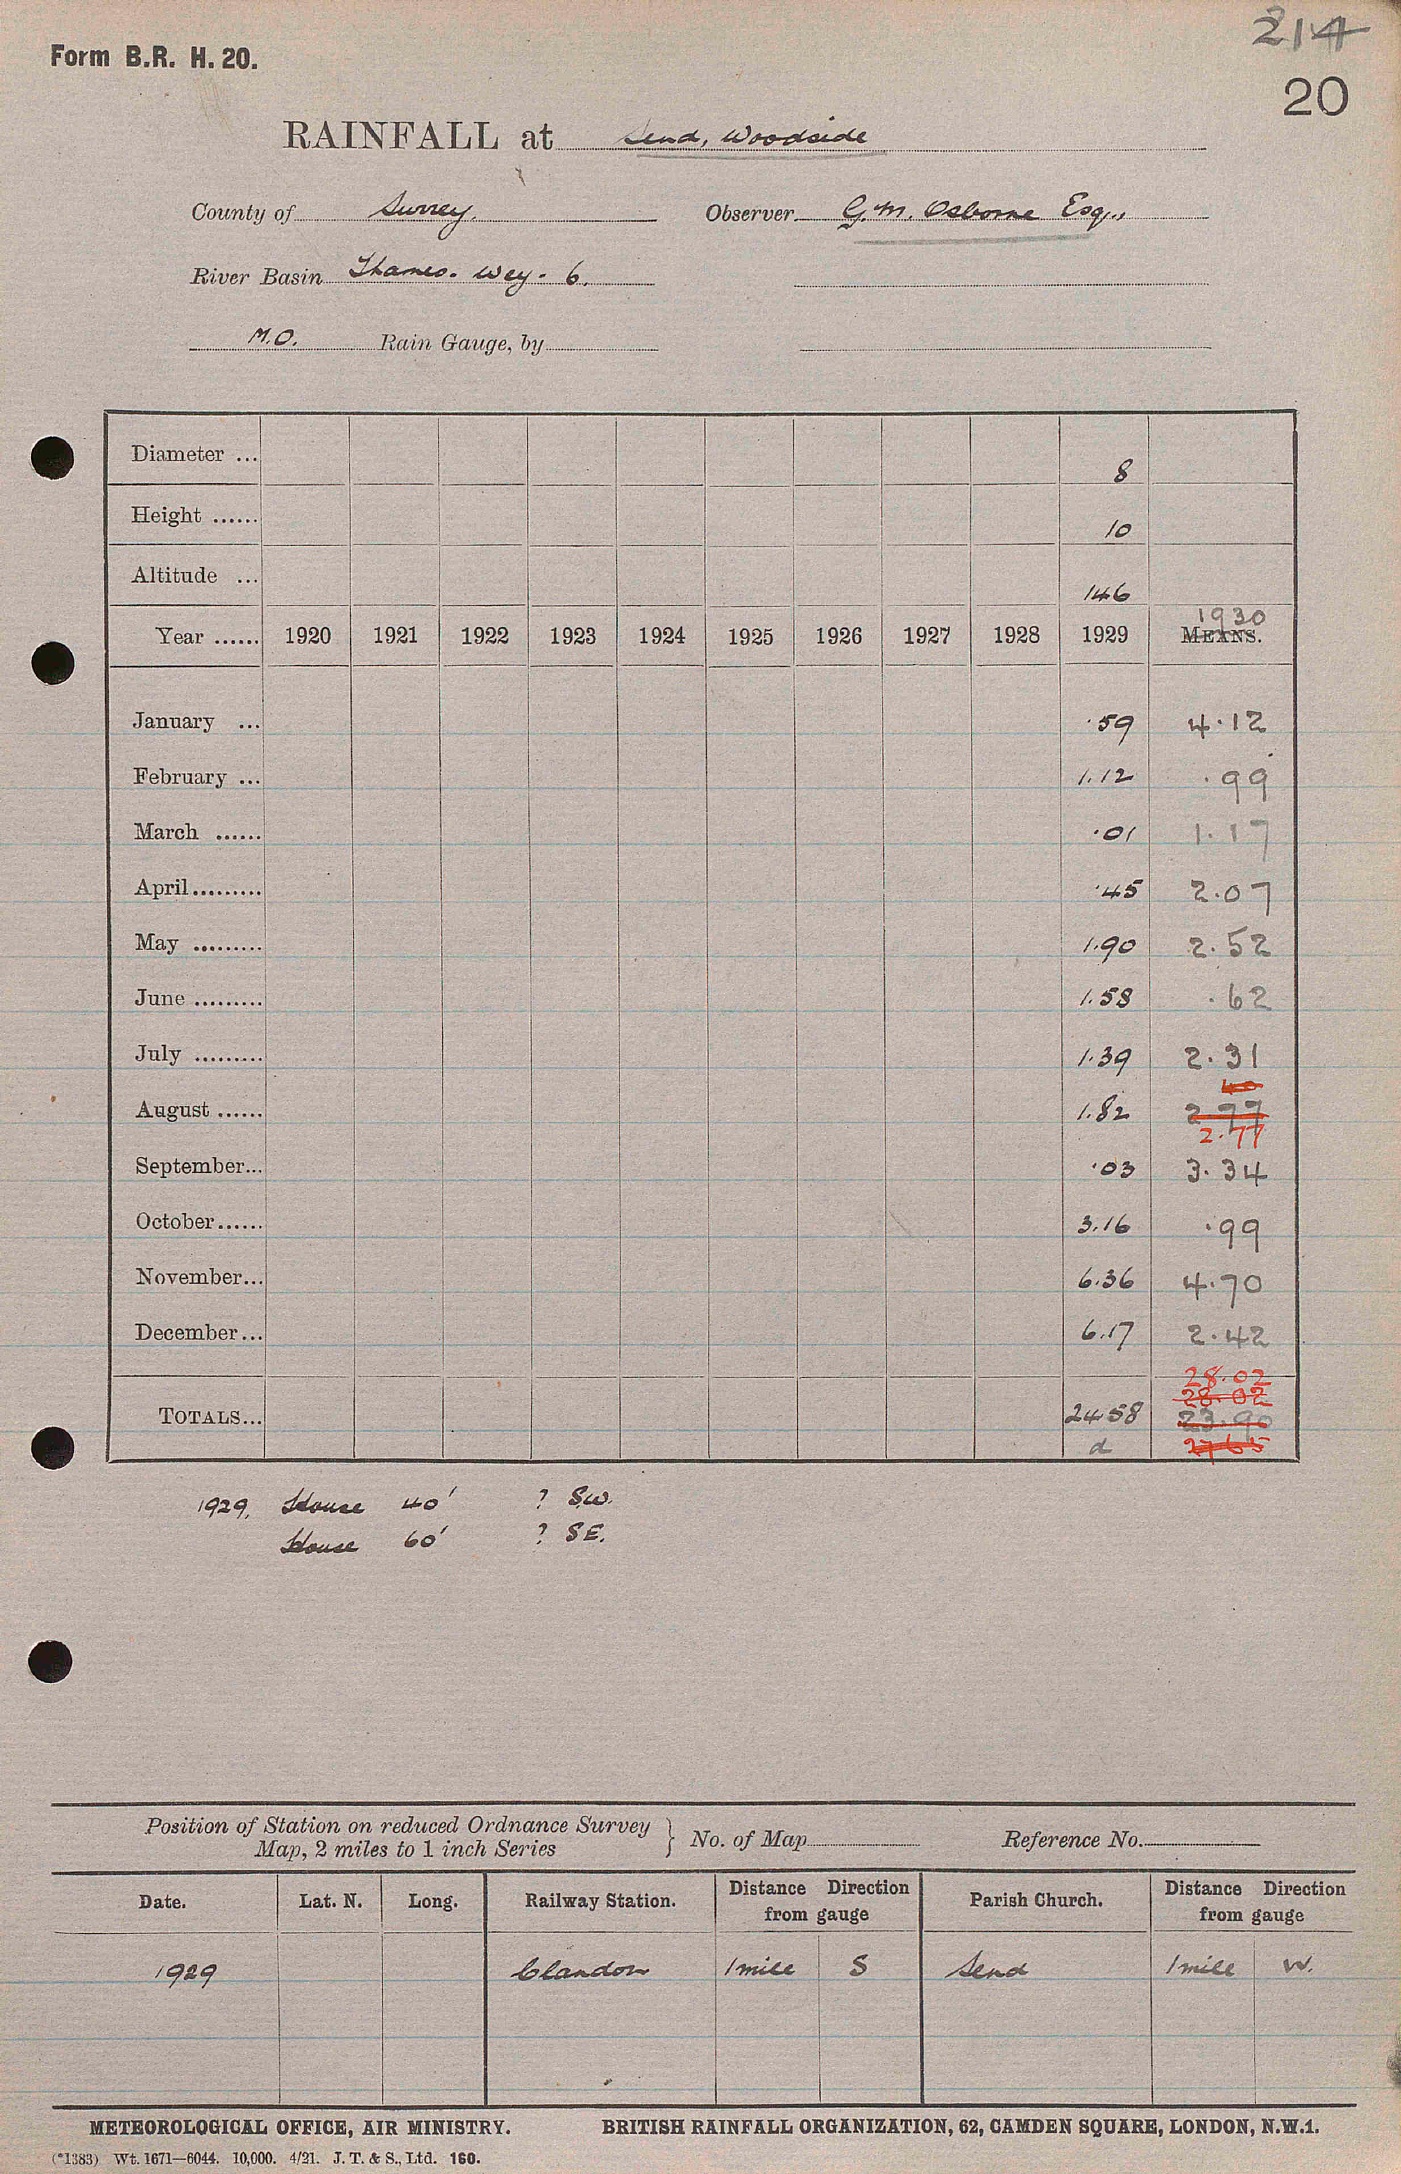 214
Form B.R. H. 20.
20
RAINFALL at Send, Woodside
County of Surrey. Observer G.M. Osborne Esq.,
River Basin Thames. Wey. 6.
M.O. Rain Gauge, by
Diameter ... 8
Height ...... 10
Altitude ... 146
1930
Year ...... 1920 1921 1922 1923 1924 1925 1926 1927 1928 1929 MEANS.
January ... .59 4.12
February ... 1.12 .99
March ...... .01 1.17
April......... .45 2.07
May ......... 1.90 2.52
June ......... 1.58 .62
July ......... 1.39 2.31
40
August ...... 1.82 2.77
2.77
September... .03 3.34
October...... 3.16 .99
November... 6.36 4.70
December... 6.17 2.42
28.02
28.02
TOTALS... 24.58 23.90
d 27.65
1929. House 40' ? S.W.
House 60' ? S.E.
Position of Station on reduced Ordnance Survey
Map, 2 miles to 1 inch Series } No. of Map Reference No.
Date. Lat. N. Long. Railway Station. Distance Direction from gauge Parish Church. Distance Direction from gauge
1929 Clandon 1 mile S Send 1 mile W.
METEOROLOGICAL OFFICE, AIR MINISTRY. BRITISH RAINFALL ORGANIZATION, 62, CAMDEN SQUARE, LONDON, N.W.1.
(*1383) Wt. 1671—6044. 10,000. 4/21. J. T. & S., Ltd. 160.